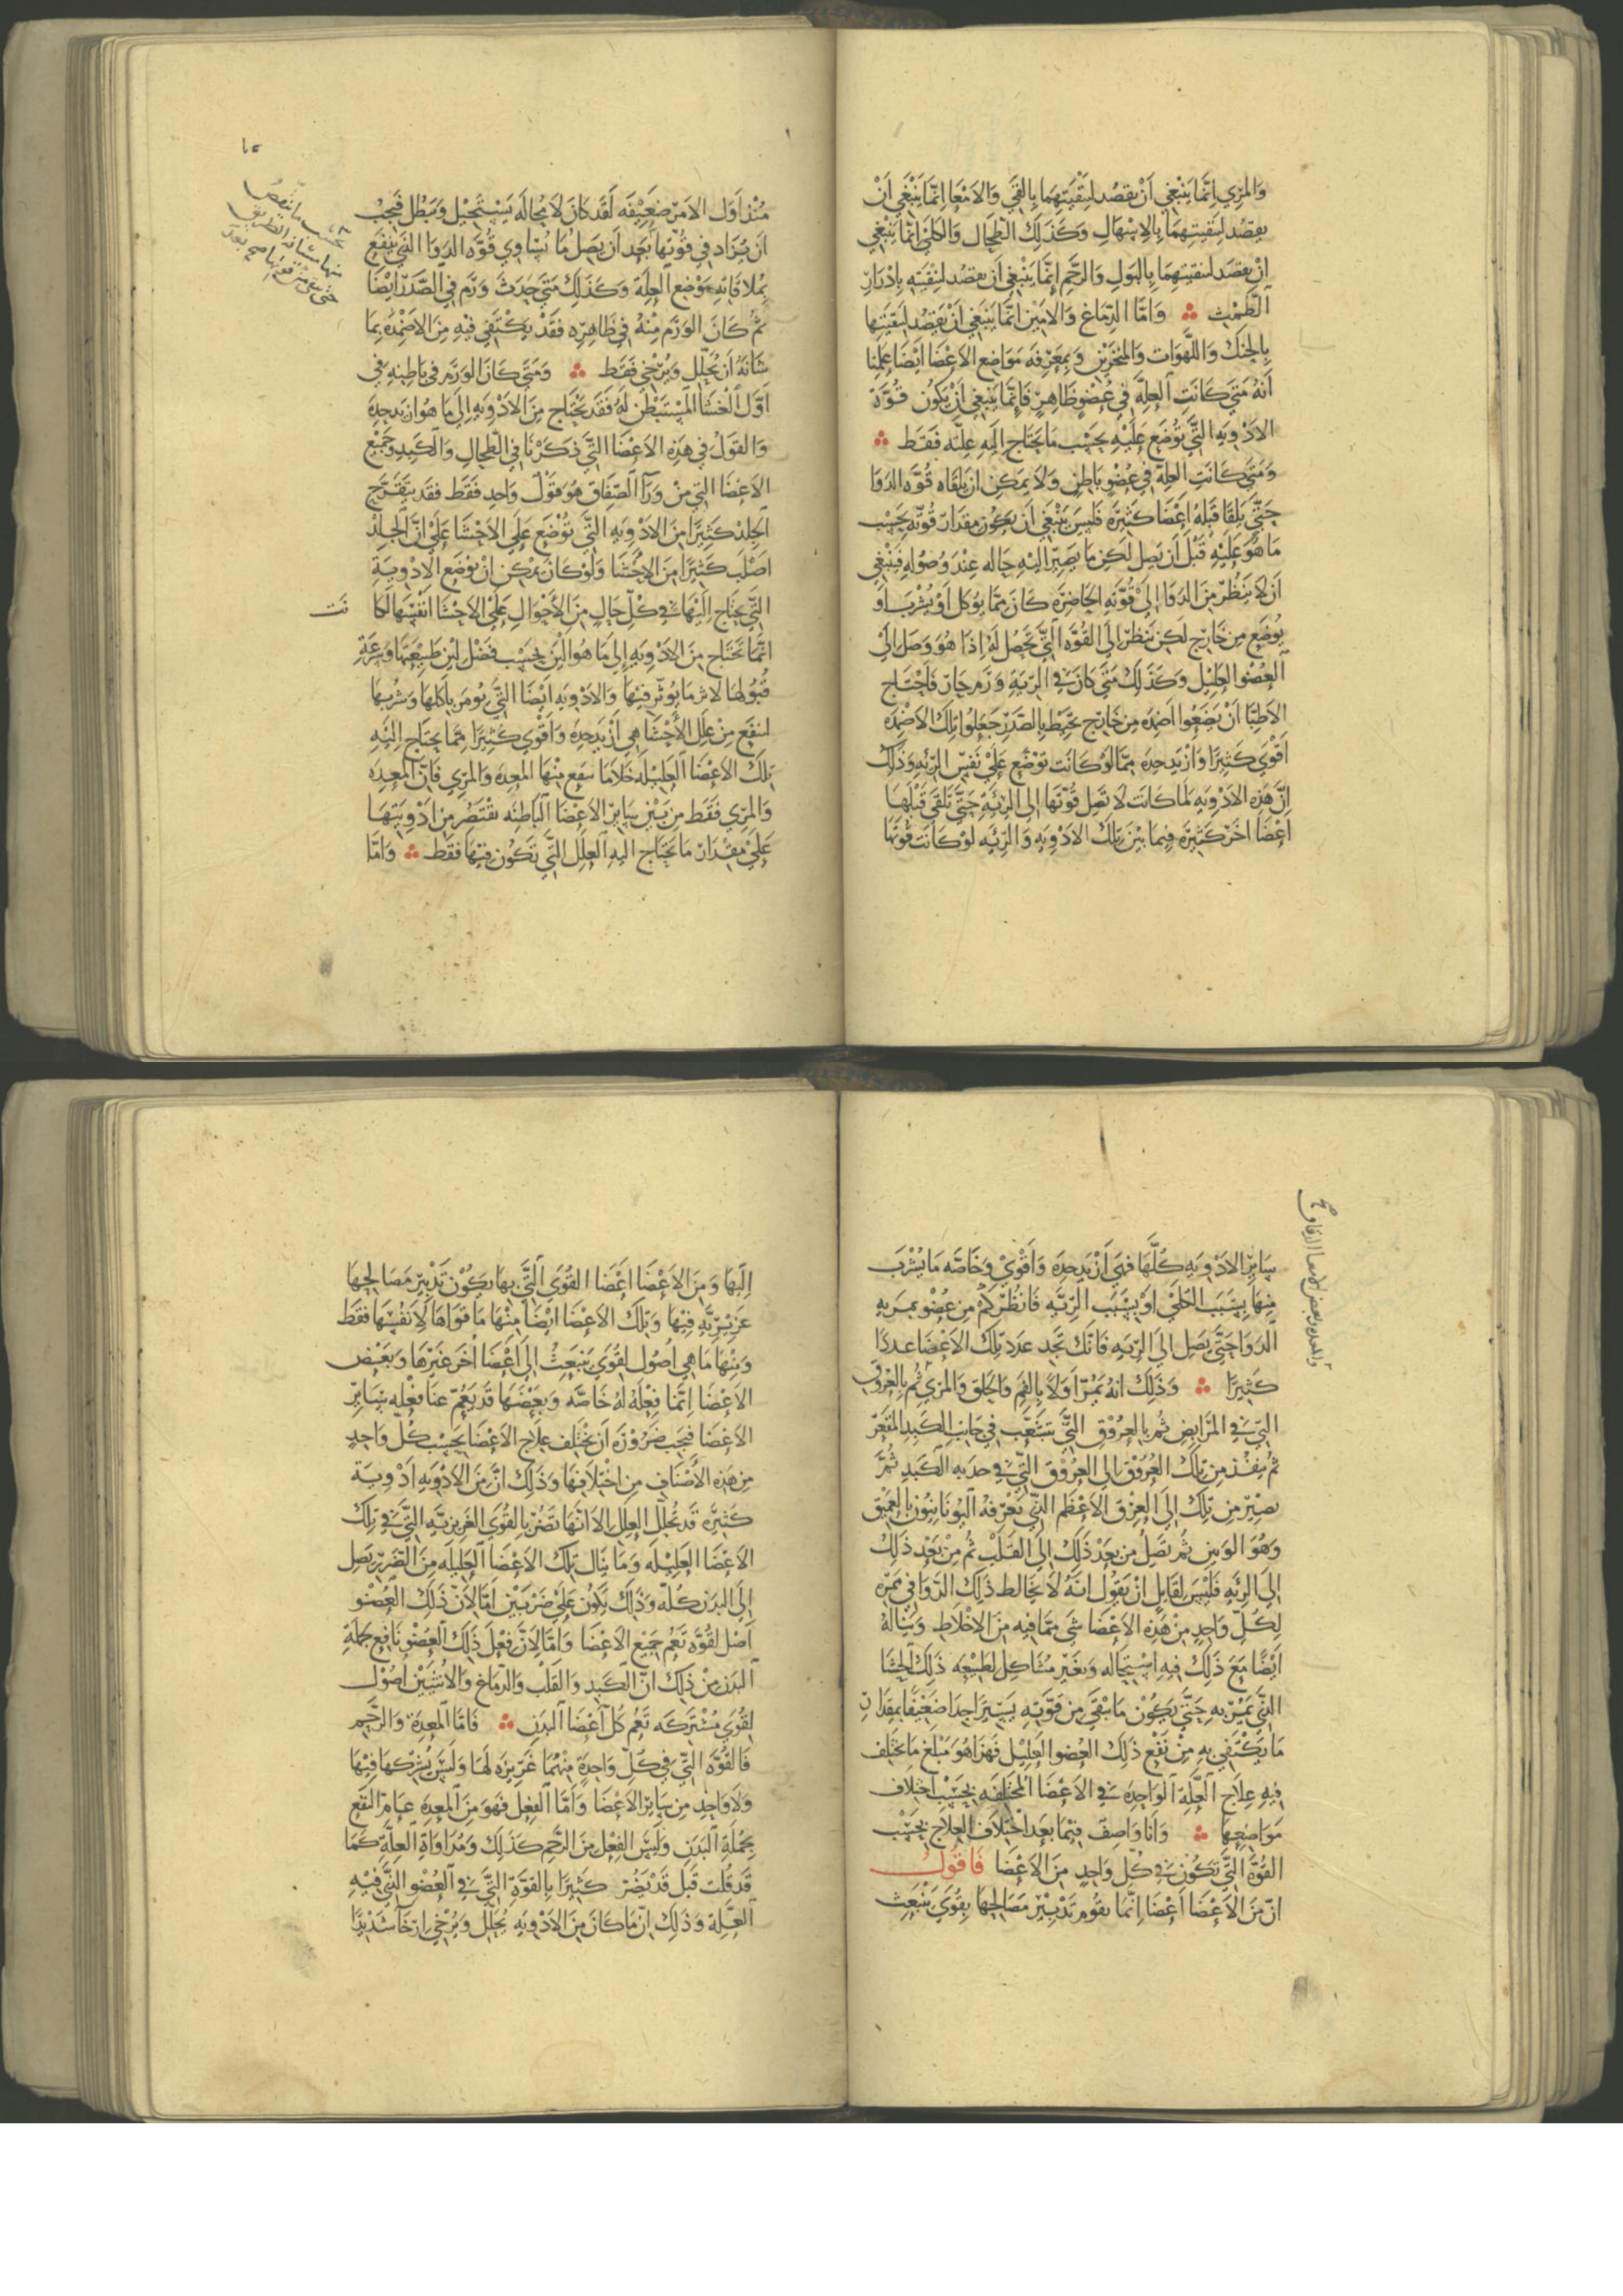 والمري انما ينبغي أن يقصد لتنقيتهما بالقي والامعا انما ينبغي أن
يقصد لتنقيتهما بالاسهال وكذلك الطحال والكلى انما ينبغي
ان يقصد لتنقيتهما بالبول والرحم إنما ينبغي ان يقصد لتنقيته بادرار
الطمث ؞ واما الدماغ والامين انما ينبغي ان يقصد لتنقيتها
بالحنك واللهوات والمنخرين وبمعرفه مواضع الاعضا ايضا علمنا
أنه متى كانت العله في عضو ظاهر فانما ينبغي أن يكون قوة
الادويه التي توضع عليه بحسب ما يحتاج اليه علته فقط ؞
ومتى كانت العله في عضو باطن ولا يمكن ان يلقاه قوه الدوا
حتى يلقا قبله اعضا كثيره فليس ينبغي ان يكون مقدار قوته بحسب
ما هو عليه قبل أن يصل لكن ما يصير اليه حاله عند وصوله فينبغي
ان لا ينظر من الدوا إلى قوته الحاضره كان مما يوكل او يشرب او
يوضع من خارج لكن ننظر الى القوه التي تحصل له إذا هو وصل إلى
العضو العليل وكذلك متى كان في الريه ورم حار فاحتاج
الاطبا أن يضعوا اضمده من خارج تحيط بالصدر جعلوا تلك الاضمده
أقوى كثيرا وازيد حده مما لو كانت توضع على نفس الرئه وذلك
ان هذه الادويه لما كانت لا تصل قوتها إلى الرئة حتى تلقى قبلها
اعضا اخر كثيرة فيما بين تلك الادويه والرئه لو كانت قوتها
١٥
منذ اول الامر ضعيفه لقد كان لا محاله يستحيل ويبطل فيجب
ان يزاد في قوتها بعد ان يصل ما يساوي قوه الدوا الذي ينفع
بملاقاته موضع العلة وكذلك متى حدث ورم في الصدر ايضا
ثم كان الورم منه في ظاهره فقد يكتفي فيه من الاضمده بما
شانه أن يحلل ويرخي فقط ؞ ومتى كان الورم في باطنه في
اول الغشا المستبطن له فقد يحتاج من الادويه إلى ما هو ازيد حده
والقول في هذه الاعضا التي ذكرنا في الطحال والكبد وجميع
الاعضا التي من ورا الصفاق هو قول واحد فقط فقد يتقرح
الجلد كثيرا من الادويه التي توضع على الاحشا على ان الجلد
اصلب كثيرا من الاحشا ولو كان يمكن ان توضع الادوية
التي يحتاج اليها في كل حال من الأحوال على الاحشا انفسها لكا نت
انما تحتاج من الادويه إلى ما هو الين بحسب فضل لين طبيعتها وسرعة
قبولها لاثر ما يوثر فيها والادويه ايضا التي يومر باكلها وشربها
لتنفع من علل الأحشا هي ازيد حدة واقوى كثيرا مما يحتاج اليه
تلك الاعضا العليله خلا ما ينفع منها المعده والمري فان المعده
والمري فقط من بين ساير الاعضا الباطنه يقتصر من ادويتها
على مقدار ما تحتاج اليه العلل التي تكون فيها فقط ؞ واما
ساير الادويه كلها فهي أزيد حده وأقوى وخاصه ما يشرب
منها بسبب الكلى او بسبب الرئه فانظر كم من عضو يمر به
الدوا حتى يصل الى الريه فانك تجد عدد تلك الاعضا عددا
كثيرا ؞ وذلك انه يمر اولا بالفم والحلق والمري ثم بالعروق
التي في المرابض ثم بالعروق التي تتشعب في جانب الكبد المقعر
ثم ينفذ من تلك العروق إلى العروق التي في حدبه الكبد ثم
يصير من تلك إلى العرق الاعظم الذي تعرفه اليونانيون بالعميق
وهو الوتين ثم يصل من بعد ذلك إلى القلب ثم من بعد ذلك
إلى الرئه فليس لقايل ان يقول انه لا يخالط ذلك الدوا في ممره
لكل واحد من هذه الاعضا شي مما فيه من الاخلاط ويناله
ايضا مع ذلك فيه استحاله وتغير مشاكل لطبيعه ذلك الحشا
الذي يمر به حتى يكون ما يبقى من قوته يسيرا جدا ضعيفا بمقدار
ما يكتفي به من نفع ذلك العضو العليل فهذا هو مبلغ ما يختلف
فيه علاج العلة الواحده في الاعضا المختلفه بحسب اختلاف
مواضعها ؞ وانا واصف فيما بعد اختلاف العلاج بحسب
القوة التي تكون في كل واحد من الاعضا فاقول
ان من الاعضا أعضا إنما يقوم تدبير مصالحها بقوى تنبعث
اليها ومن الاعضا اعضا القوى التي بها يكون تدبير مصالحها
غريزيه فيها وتلك الاعضا ايضا منها ما قواها لأنفسها فقط
ومنها ما هي اصول لقوى ينبعث إلى أعضا أخر غيرها وبعض
الاعضا انما فعله له خاصه وبعضها قد يعم منافعه سائر
الاعضا فيجب ضرورة ان يختلف علاج الاعضا بحسب كل واحد
من هذه الأصناف من اختلافها وذلك ان من الادويه ادوية
كثيره قد تحلل العلل إلا انها تضر بالقوى الغريزيه التي في تلك
الاعضا العليله وما ينال تلك الاعضا العليله من الضرر يصل
إلى البدن كله وذلك يكون على ضربين اما لان ذلك العضو
أصل لقوه تعم جميع الاعضا واما لان فعل ذلك العضو نافع لجملة
البدن من ذلك ان الكبد والقلب والدماغ والانثيين اصول
لقوى مشتركه تعم كل أعضا البدن ؞ فاما المعدة والرحم
فالقوه التي في كل واحدة منهما غريزه لها وليس يشركها فيها
ولا واحد من ساير الاعضا واما الفعل فهو من المعده عام النفع
بجملة البدن وليس الفعل من الرحم كذلك ومداواة العلة كما
قد قلت قبل قد يضر كثيرا بالقوة التي في العضو الذي فيه
العلة وذلك ان ما كان من الادويه يحلل ويرخي ارخآ شديدا